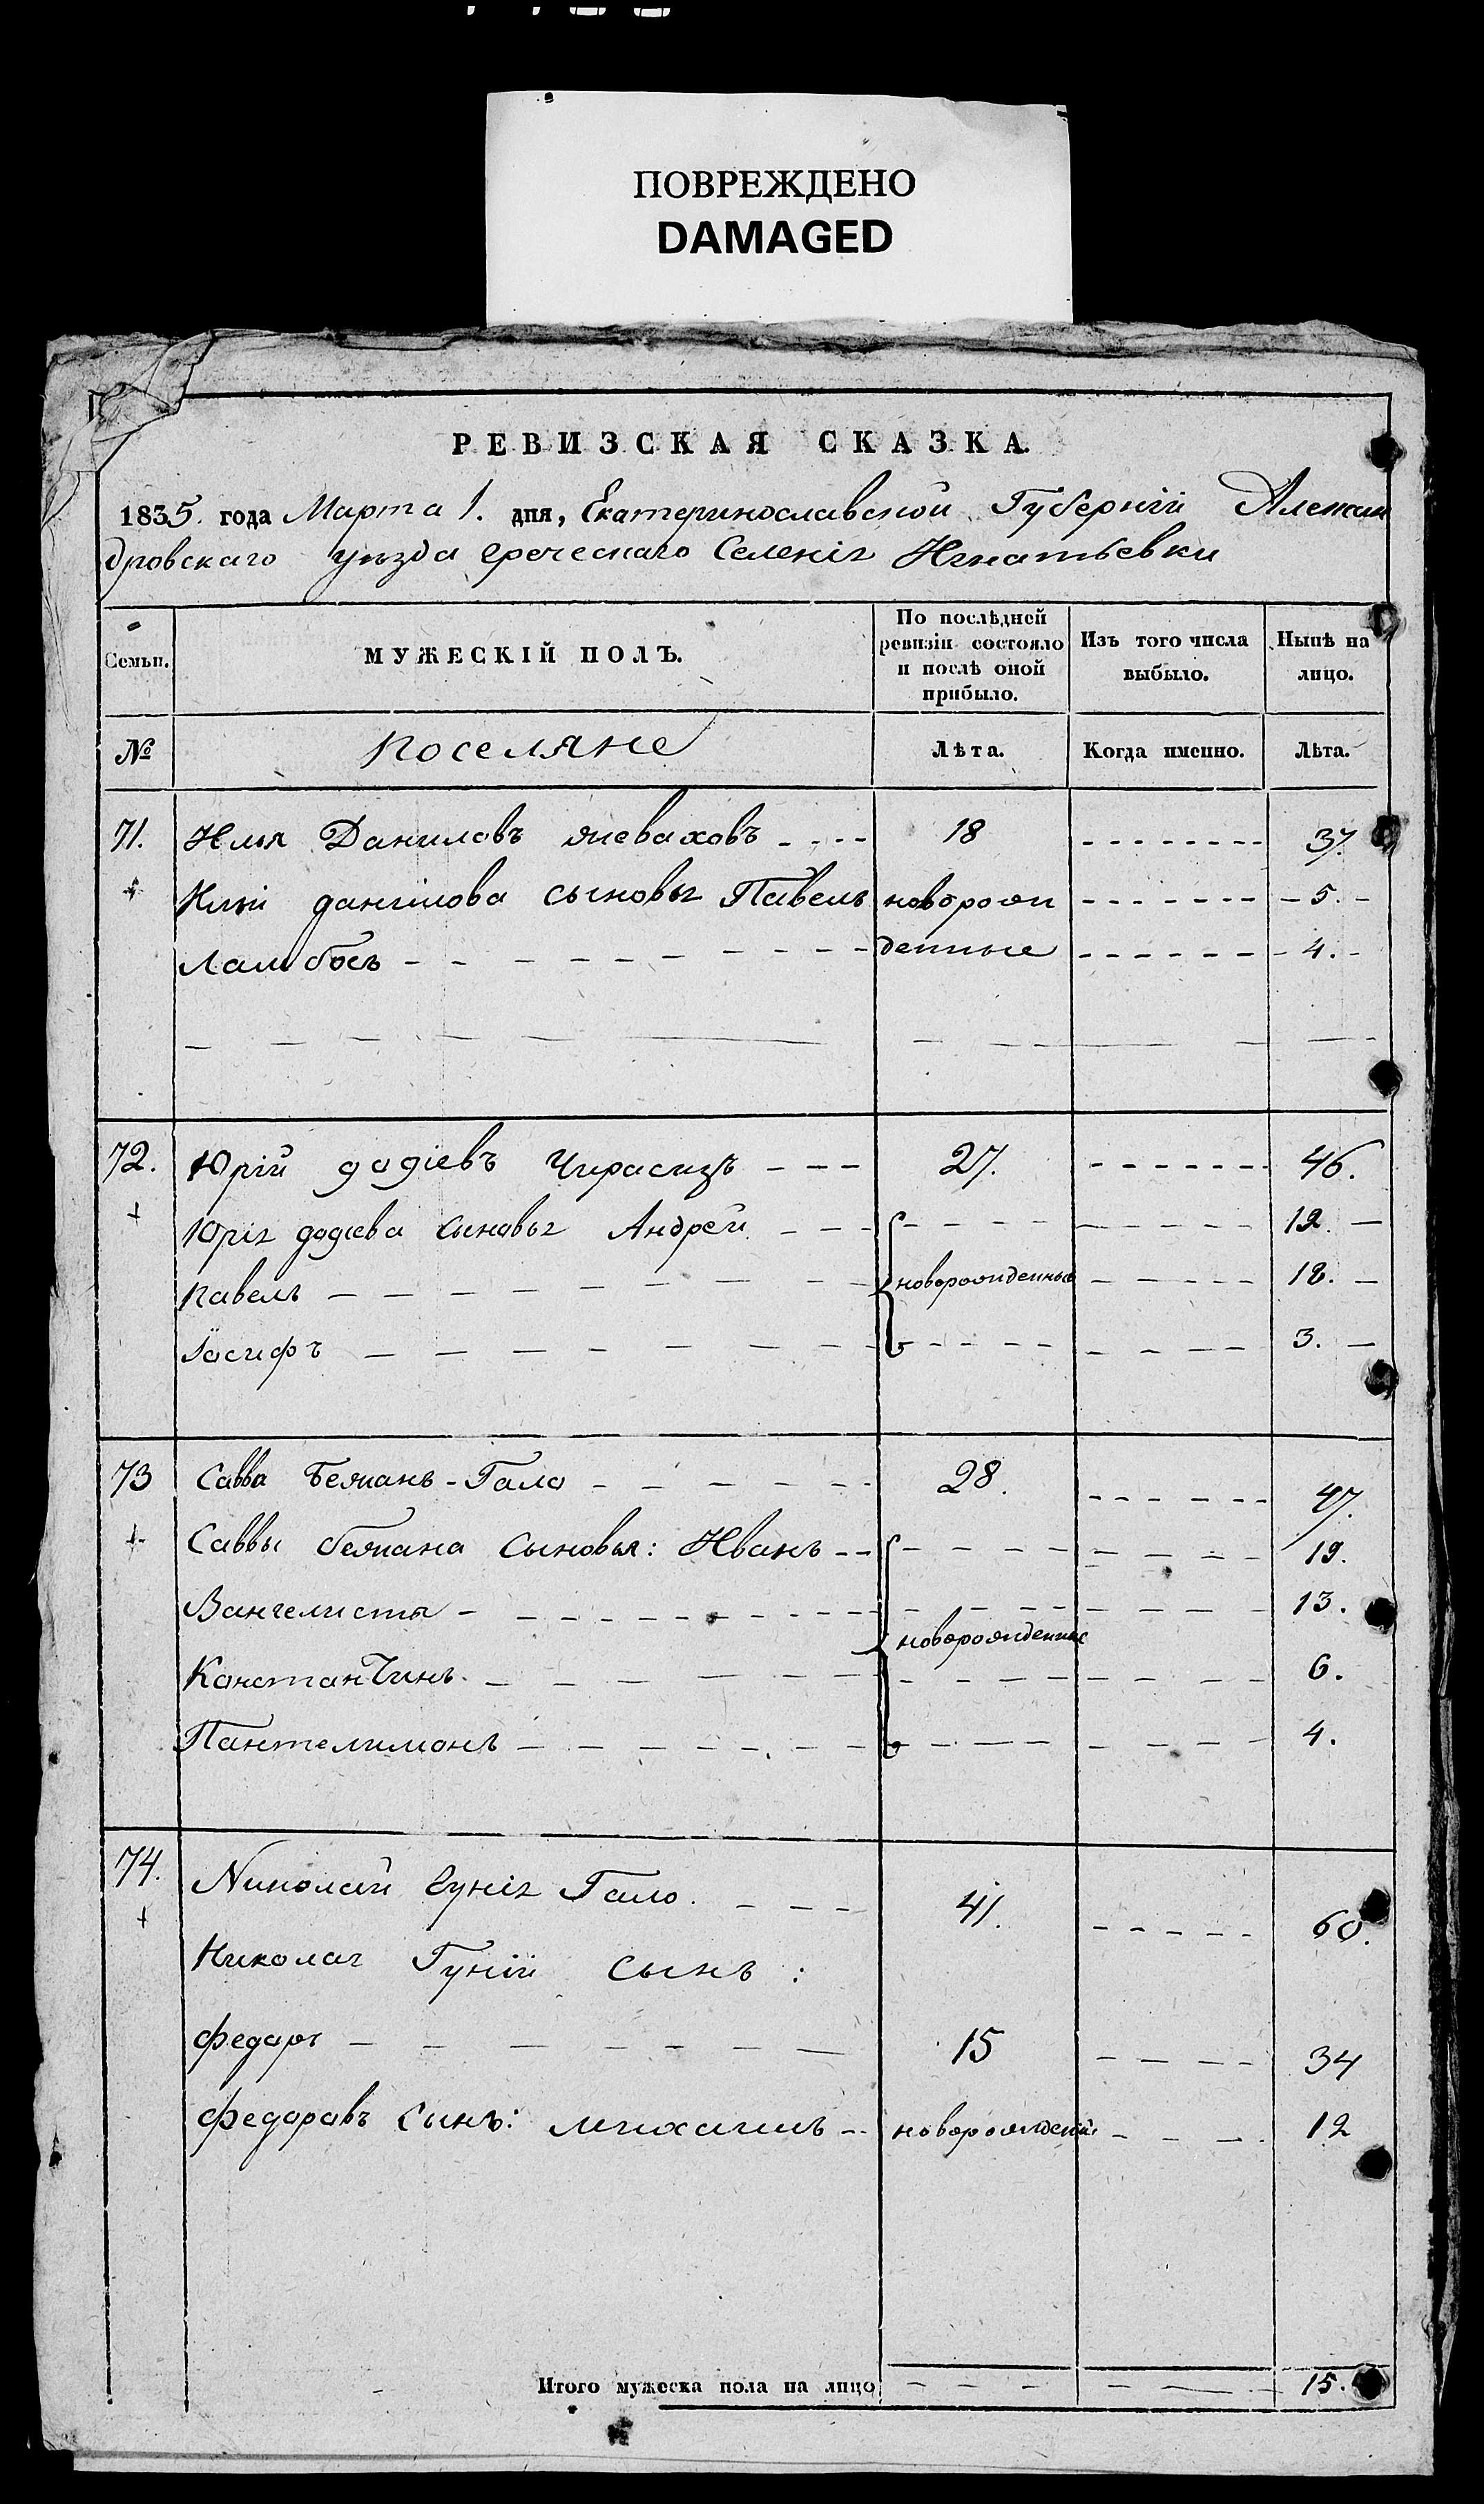 ПОВРЕЖДЕНО
DAMAGED
РЕВИЗСКАЯ СКАЗКА.
1835. года Марта 1. дня, Екатеринославской Губерніи Алексан
дровскаго уезда греческаго Селенія Игнатьевки
Семьи. МУЖЕСКІЙ ПОЛЪ. По послѣдней ревизіи состояло и послѣ оной прибыло. Изъ того числа выбыло. Нынѣ на лицо.
№ поселяне Лѣта. Когда именно. Лѣта.
71. Илья Даниловъ жеваховъ 18 37.
Ильи данилова сыновья Павелъ новорож 5.
Ламбосъ денные 4.
72. Юрій дадіевъ Чирасизъ 27. 46.
Юрія дадіева сыновья Андрей 19.
павелъ новорожденные 12.
Іосифъ 3.
73 Савва Бежанъ-Гало 28. 47.
Саввы бежана сыновья: Иванъ 19.
Вангелисты 13.
новорожденные
Константинъ 6.
Пантелимонъ 4.
74. Николай Гунія Гало. 41. 60.
Николая Гуніи сынъ:
федоръ 15 34
федоровъ сынъ: михаилъ новорожденій 12
Итого мужеска пола на лицо 15.